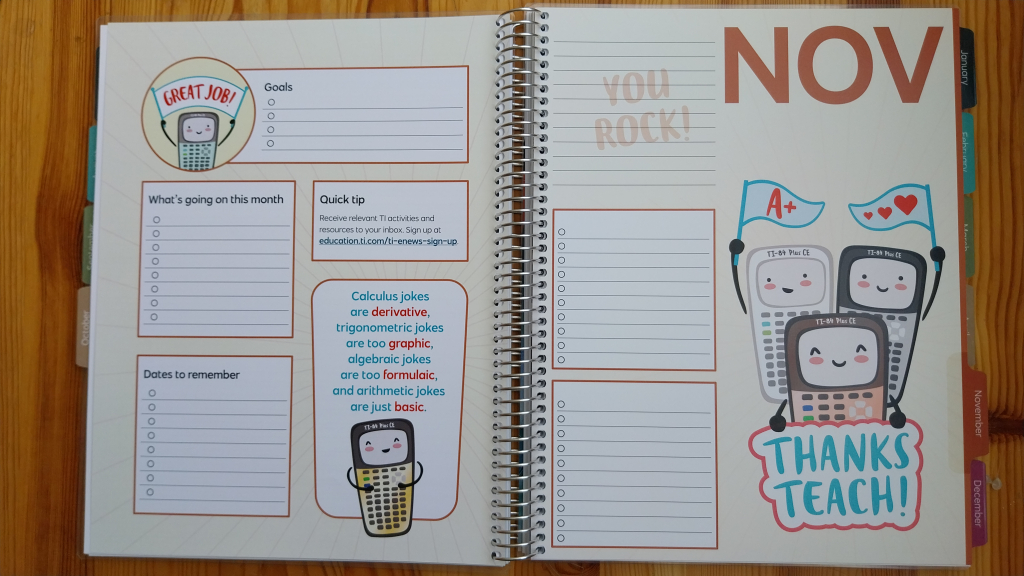 GREAT JOB!
Goals
What's going on this month
Quick tip
Receive relevant TI activities and
resources to your inbox. Sign up at
education.ti.com/ti-enews-sign-up.
Calculus jokes
are derivative,
trigonometric jokes
are too graphic,
algebraic jokes
are too formulaic,
and arithmetic jokes
are just basic.
TI-84 Plus CE
Dates to remember
October
YOU
ROCK!
NOV
A+
TI-84 Plus CE
TI-84 Plus CE
TI-84 Plus CE
THANKS
TEACH!
January
February
November
December